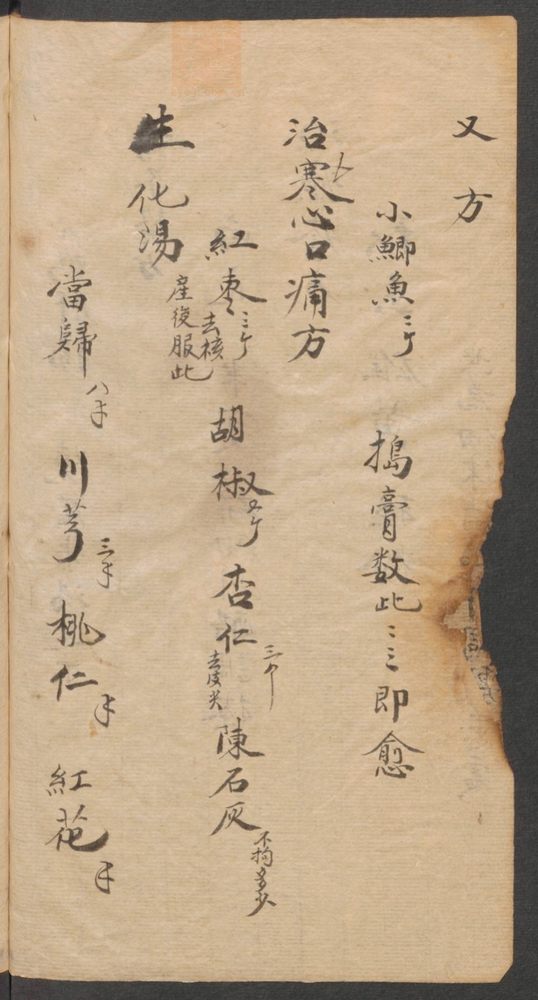 又方
小鯽魚三个 搗膏数此三三即愈
治寒心口痛方
紅枣三个去核 胡椒五个 杏仁三个去皮尖 陳石灰不拘多少
生化湯 産後服此
當歸八千 川芎三千 桃仁千 紅花千